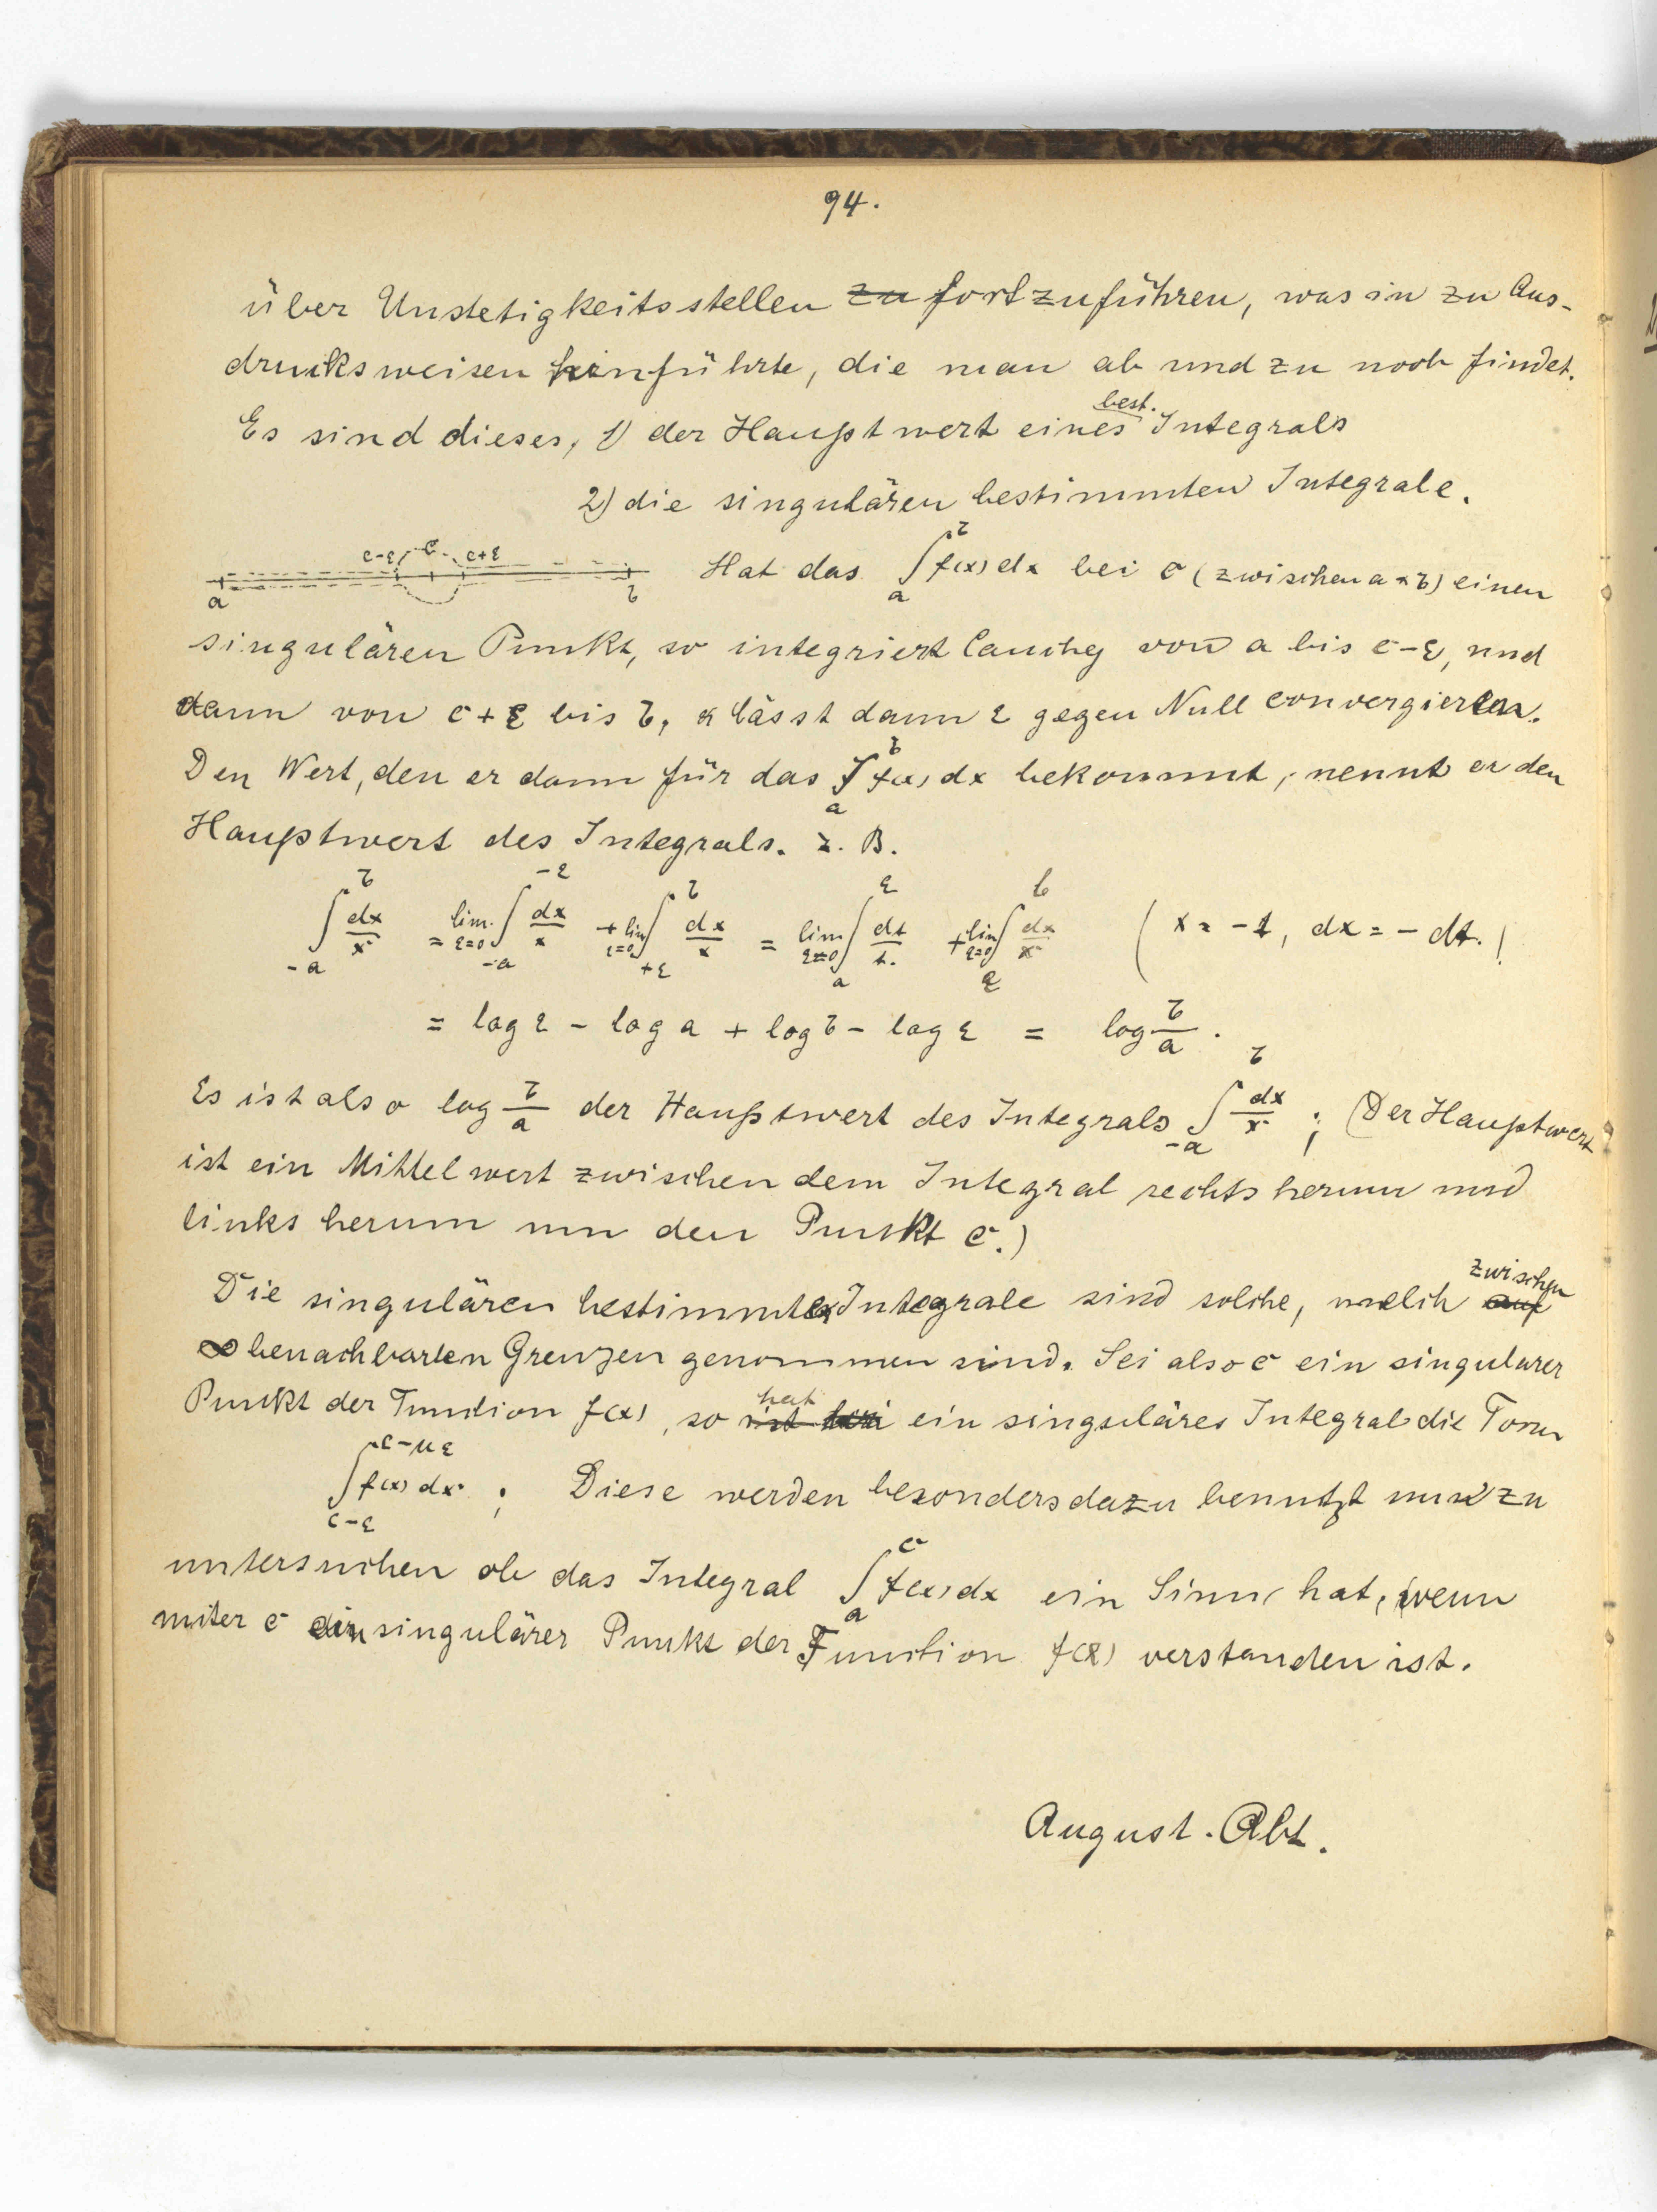 94.
über Unstetigkeitsstellen ~~zu~~ fortzuführen, was in zu Aus-
drucksweisen hinführte, die man ab und zu noch findet.
Es sind dieses, 1) der Hauptwert eines best. Integrals
2) die singulären bestimmten Integrale.
c-ε c c+ε
a b
Hat das ∫_a^b f(x) dx bei c (zwischen a & b) einen
singulären Punkt, so integriert Cauchy von a bis c-ε, und
dann von c+ε bis b, & lässt dann ε gegen Null convergieren.
Den Wert, den er dann für das ∫_a^b f(x) dx bekommt, nennt er den
Hauptwert des Integrals. z. B.
∫_{-a}^b dx/x = lim_{ε=0} ∫_{-a}^{-ε} dx/x + lim_{ε=0} ∫_{+ε}^b dx/x = lim_{ε=0} ∫_a^ε dt/t. + lim_{ε=0} ∫_ε^b dx/x ( x = -t, dx = - dt. )
= log ε - log a + log b - log ε = log b/a .
Es ist also log b/a der Hauptwert des Integrals ∫_{-a}^b dx/x ; (Der Hauptwert
ist ein Mittelwert zwischen dem Integral rechts herum und
links herum um den Punkt c.)
Die singulären bestimmten Integrale sind solche, welch ~~auf~~ zwischen
∞ benachbarten Grenzen genommen sind. Sei also c ein singulärer
Punkt der Function f(x), so ~~ist bei~~ hat ein singuläres Integral die Form
∫_{c-ε}^{c-με} f(x) dx ; Diese werden besonders dazu benutzt um zu
untersuchen ob das Integral ∫_a^c f(x) dx ein Sinn hat, wenn
unter c ein singulärer Punkt der Function f(x) verstanden ist.
August. Abt.